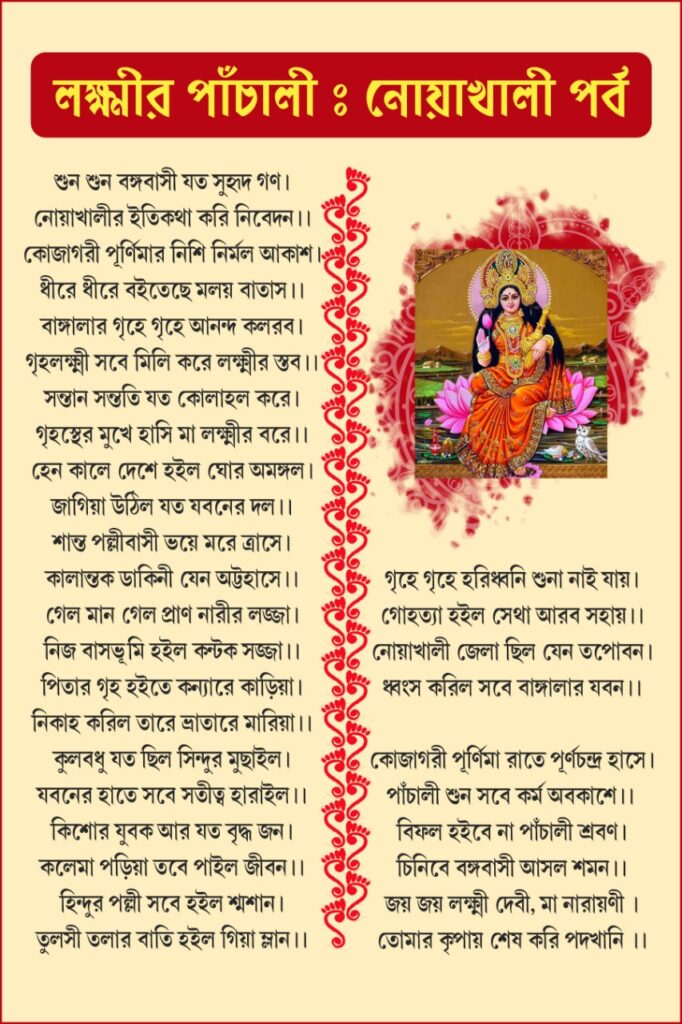 লক্ষ্মীর পাঁচালী ঃ নোয়াখালী পর্ব
শুন শুন বঙ্গবাসী যত সুহৃদ গণ।
নোয়াখালীর ইতিকথা করি নিবেদন।।
কোজাগরী পূর্ণিমার নিশি নির্মল আকাশ।
ধীরে ধীরে বইতেছে মলয় বাতাস।।
বাঙ্গালার গৃহে গৃহে আনন্দ কলরব।
গৃহলক্ষ্মী সবে মিলি করে লক্ষ্মীর স্তব।।
সন্তান সন্ততি যত কোলাহল করে।
গৃহস্থের মুখে হাসি মা লক্ষ্মীর বরে।।
হেন কালে দেশে হইল ঘোর অমঙ্গল।
জাগিয়া উঠিল যত যবনের দল।।
শান্ত পল্লীবাসী ভয়ে মরে ত্রাসে।
কালান্তক ডাকিনী যেন অট্টহাসে।।
গেল মান গেল প্রাণ নারীর লজ্জা।
নিজ বাসভূমি হইল কন্টক সজ্জা।।
পিতার গৃহ হইতে কন্যারে কাড়িয়া।
নিকাহ করিল তারে ভ্রাতারে মারিয়া।।
কুলবধু যত ছিল সিন্দুর মুছাইল।
যবনের হাতে সবে সতীত্ব হারাইল।।
কিশোর যুবক আর যত বৃদ্ধ জন।
কলেমা পড়িয়া তবে পাইল জীবন।।
হিন্দুর পল্লী সবে হইল শ্মশান।
তুলসী তলার বাতি হইল গিয়া ম্লান।।
গৃহে গৃহে হরিধ্বনি শুনা নাই যায়।
গোহত্যা হইল সেথা আরব সহায়।।
নোয়াখালী জেলা ছিল যেন তপোবন।
ধ্বংস করিল সবে বাঙ্গালার যবন।।
কোজাগরী পূর্ণিমা রাতে পূর্ণচন্দ্র হাসে।
পাঁচালী শুন সবে কর্ম অবকাশে।।
বিফল হইবে না পাঁচালী শ্রবণ।
চিনিবে বঙ্গবাসী আসল শমন।।
জয় জয় লক্ষ্মী দেবী, মা নারায়ণী ।
তোমার কৃপায় শেষ করি পদখানি ।।